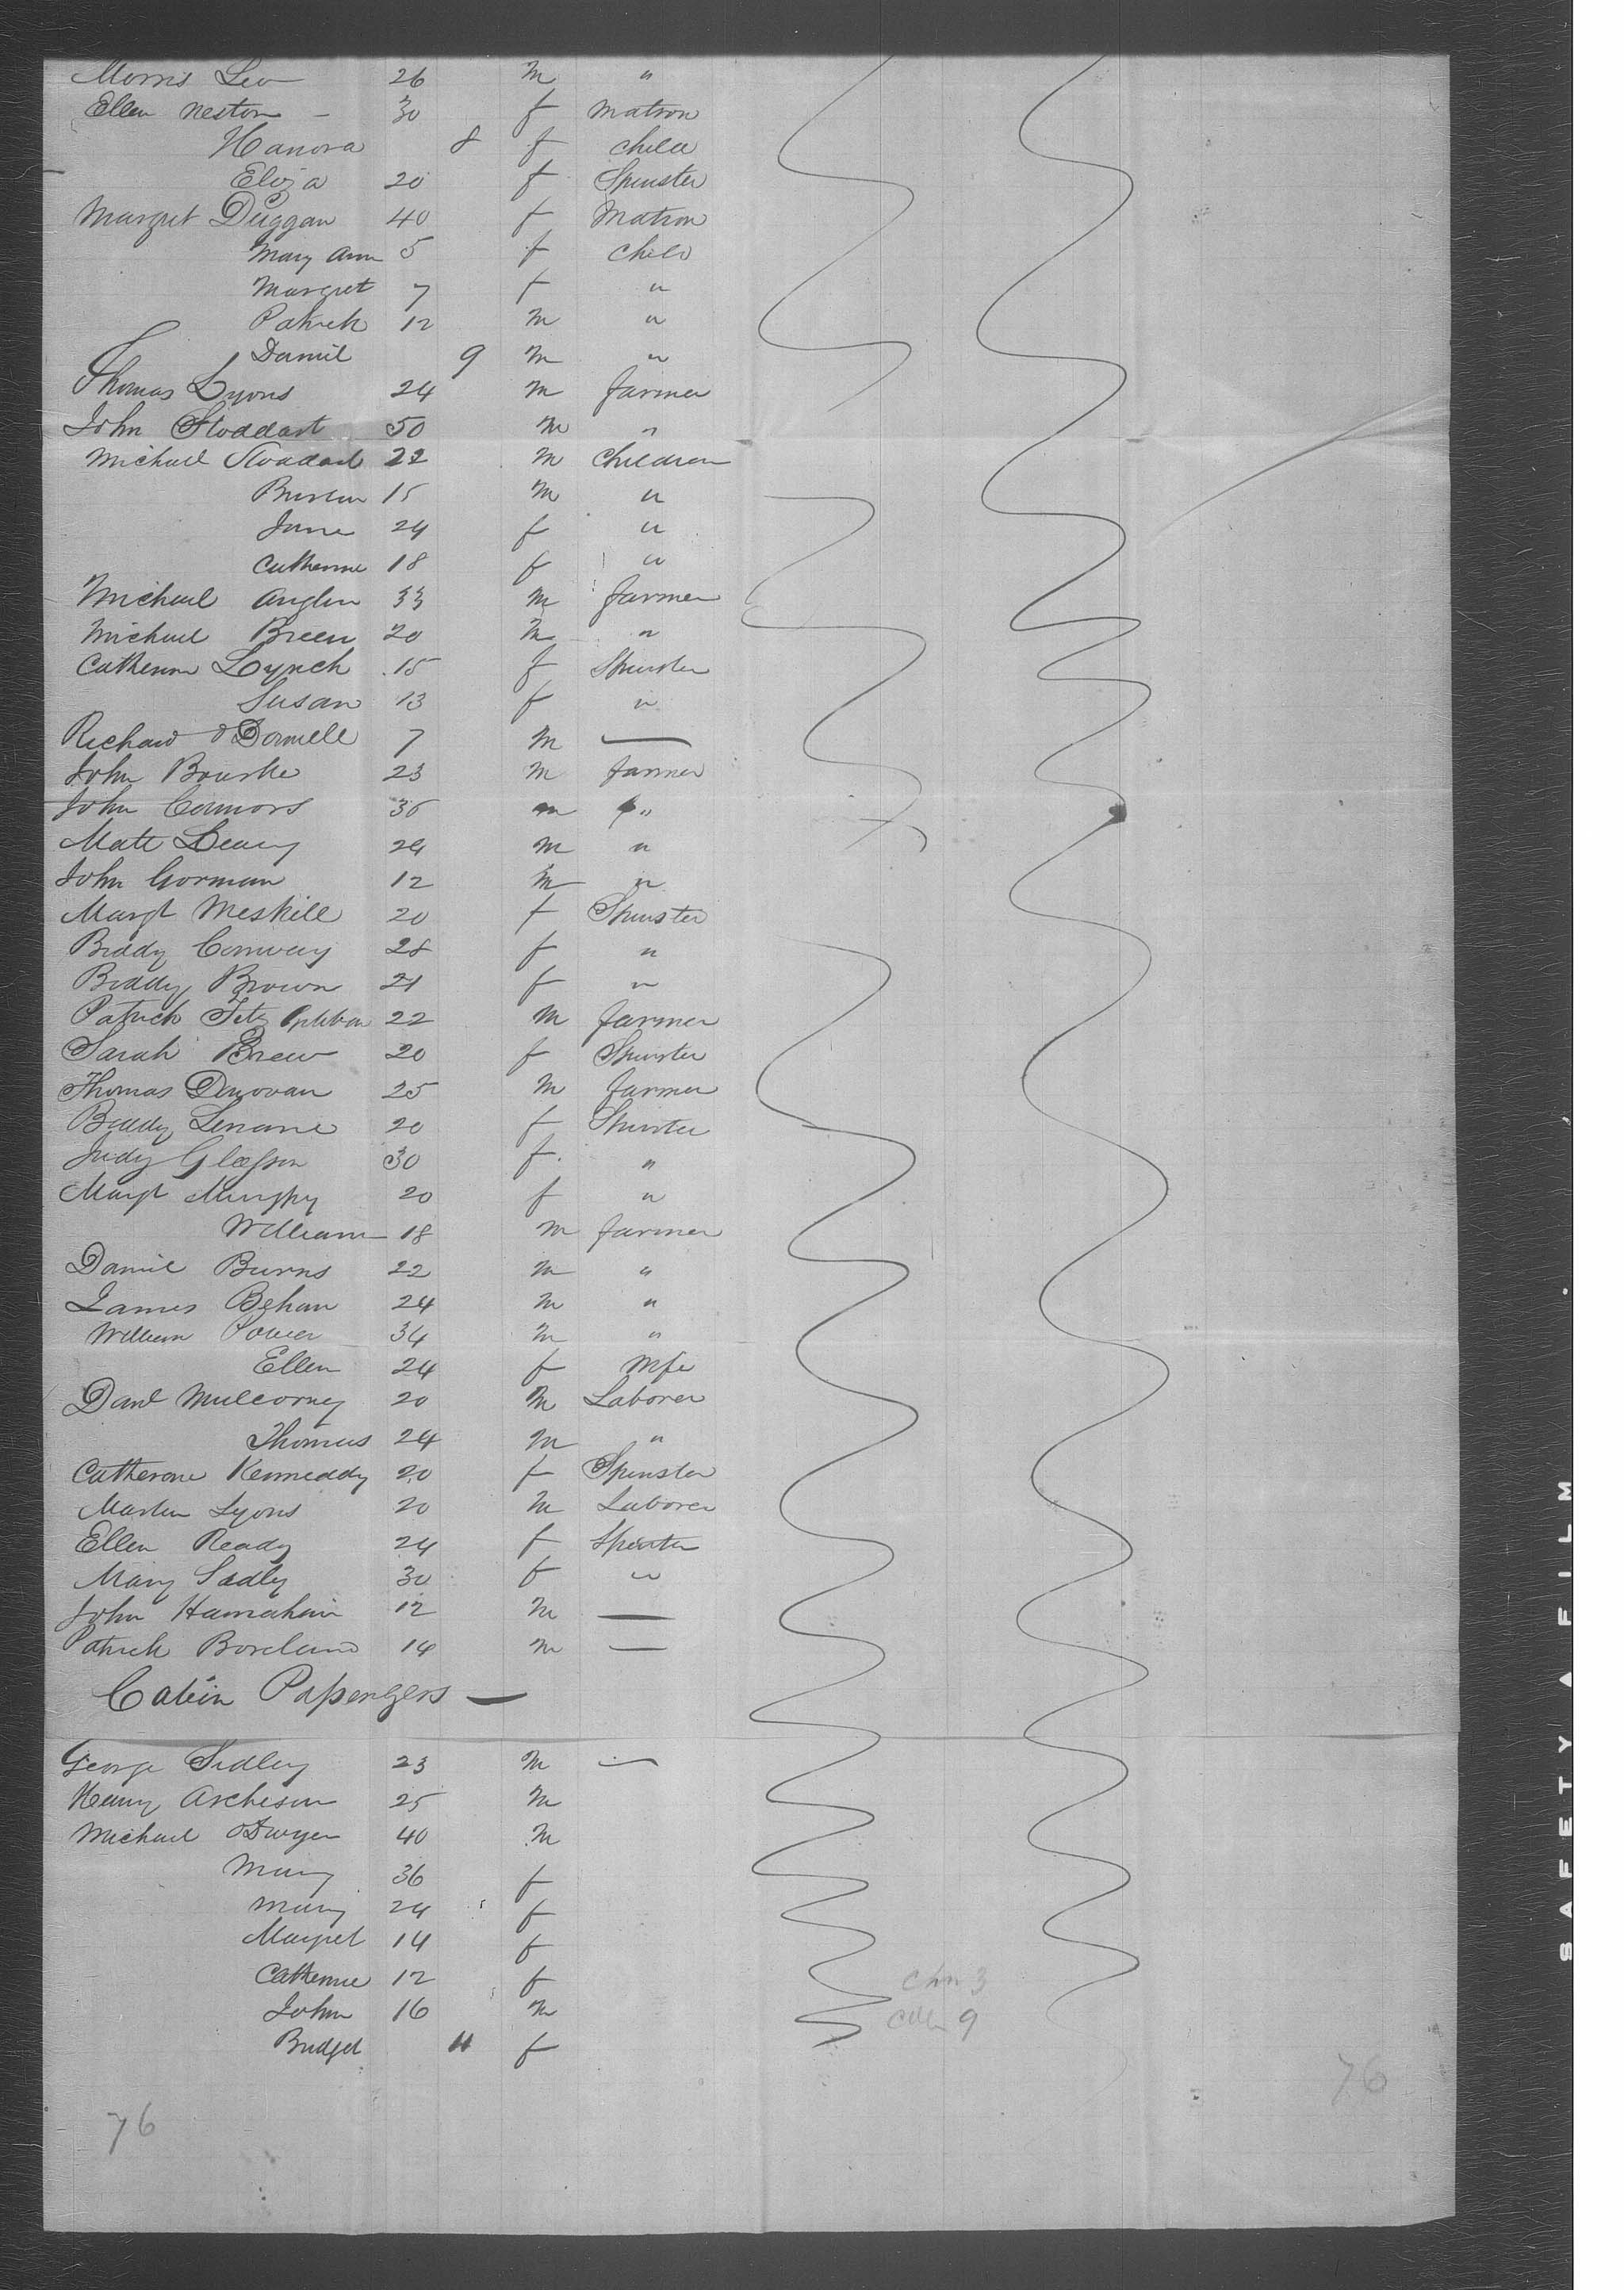 Morris Leo 26 m "
Ellen Neston - 30 f Matron
Hanora 8 f child
Eliza 20 f Spinster
Margret Duggan 40 f Matron
Mary Ann 5 f child
Margret 7 f "
Patrick 12 m "
Daniel 9 m "
Thomas Lyons 24 m farmer
John Stoddart 50 m "
Michael Stoddart 22 m Children
15 m "
Jane 24 f "
Catherine 18 f "
Michael Anglin 33 m farmer
Michael Breen 20 m "
Catherine Lynch 15 f Spinster
Susan 13 f "
Richard O Donnell 7 m —
John Bourke 23 m farmer
John Connors 36 m "
Matt Leary 24 m "
John Gorman 12 m "
Margt Meskill 20 f Spinster
Biddy Conway 28 f "
Biddy Brown 21 f "
Patrick Fitz 22 m farmer
Sarah Brew 20 f Spinster
Thomas Donovan 25 m farmer
Biddy Lenane 20 f Spinster
Judy Gleeson 30 f "
Margt Murphy 20 f "
William 18 m farmer
Daniel Burns 22 m "
James Behan 24 m "
William Power 34 m "
Ellen 24 f Wife
Danl Mulcorney 20 m Laborer
Thomas 24 m "
Catherine Kenneddy 20 f Spinster
Martin Lyons 20 m Laborer
Ellen Ready 24 f Spinster
Mary Sadly 30 f "
John Hannahan 12 m —
Patrick Boreland 14 m —
Cabin Passengers —
George Sidley 23 m —
Henry Archeson 25 m
Michael ODwyer 40 m
Mary 36 f
Mary 24 f
Margret 14 f
Catherine 12 f
John 16 m
Bridget 11 f
chn 3
9
76
76
SAFETY A FILM